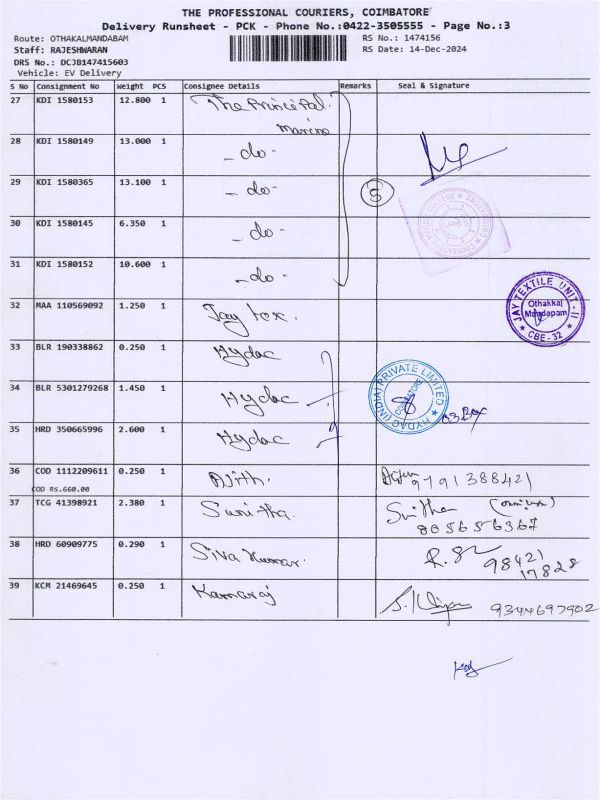 THE PROFESSIONAL COURIERS, COIMBATORE
Delivery Runsheet - PCK - Phone No.:0422-3505555 - Page No.:3
Route: OTHAKALMANDABAM
RS No.: 1474156
Staff: RAJESHWARAN
RS Date: 14-Dec-2024
DRS No.: DCJB147415603
Vehicle: EV Delivery
S No Consignment No Weight PCS Consignee Details Remarks Seal & Signature
27 KDI 1580153 12.800 1 The Principal.
Marine
28 KDI 1580149 13.000 1 - do -
29 KDI 1580365 13.100 1 - do - 5
30 KDI 1580145 6.350 1 - do -
31 KDI 1580152 10.600 1 - do -
32 MAA 110569092 1.250 1 Jay tex.
JAY TEXTILE UNIT-II
Othakkal
Mandapam
CBE-32
33 BLR 190338862 0.250 1 Hydac
34 BLR 5301279268 1.450 1 Hydac
HYDAC (INDIA) PRIVATE LIMITED
COIMBATORE
03 Box
35 HRD 350665996 2.600 1 Hydac
36 COD 1112209611 0.250 1 Ajith. 9791388421
COD RS.660.00
37 TCG 41398921 2.380 1 Sunitha.
38 HRD 60909775 0.290 1 Siva Kumar. 98421
17828
39 KCM 21469645 0.250 1 Kamaraj 9344697902